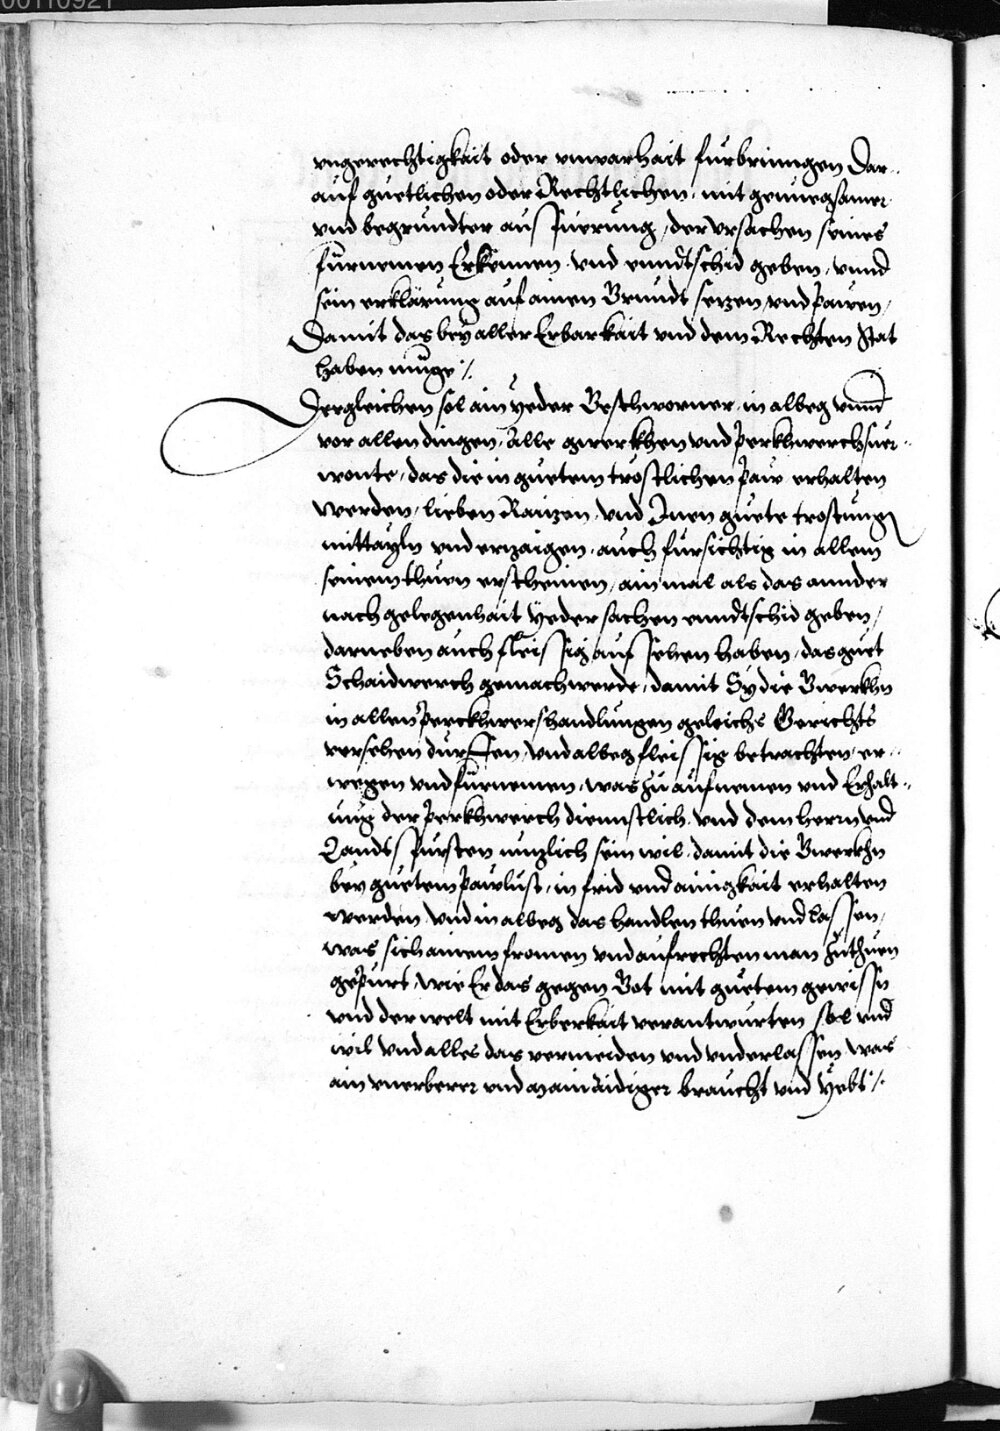 00110921
vngerechtigkait oder vnwarhait furbringen Dar-
auf guetlichen oder Rechtlichen, mit genuegsamer
vnd begrundter ausfuerung, der vrsachen seines
furnemen Erkennen vnd enndtschid geben, vnnd
sein erklärung auf ainen Grundt sezen, vnd pawen,
Damit das bey aller Erbarkait vnd dem Rechten stat
haben muge /.
Dergleichen sol ain yeder Geschworner, in alweg vnnd
vor allen dingen, Alle gwerkhen vnd perkhwerchsuer-
wonte, das die in guetem trostlichen paw erhalten
werden, lieben Raizen, vnd Inen guete trostung
mittayln vnd erzaigen, auch fursichtig in allem
seinem thuen erscheinen, ain mal als das annder
nach gelegenhait yeder sachen enndtschid geben,
darneben auch fleissig aufsehen haben, das guet
Schaidwerch gemacht werde, damit Sy die Gwerkhn
in allen perckhwershandlungen geleichs Gerichts
versehen durffen, vnd alweg fleissig betrachten, er-
wegen vnd furnemen, was zu aufnemen vnd Erhalt-
ung der perkhwerch diennstlich, vnd dem herrn vnd
Landsfursten nuzlich sein wil, damit die Gwerkhn
bey guetem pawlust, in frid vnd ainigkait erhalten
werden vnd in alweg das handlen thuen vnd lassen,
was sich ainem fromen vnd aufrechten man zuthuen
gepurt, wie Er das gegen Got mit guetem gewissn
vnd der welt mit Erberkait verantwurten sol vnd
wil vnd alles das vermeiden vnd vnderlassen was
ain vnerberer vnd mainaidiger braucht vnd yebt /.